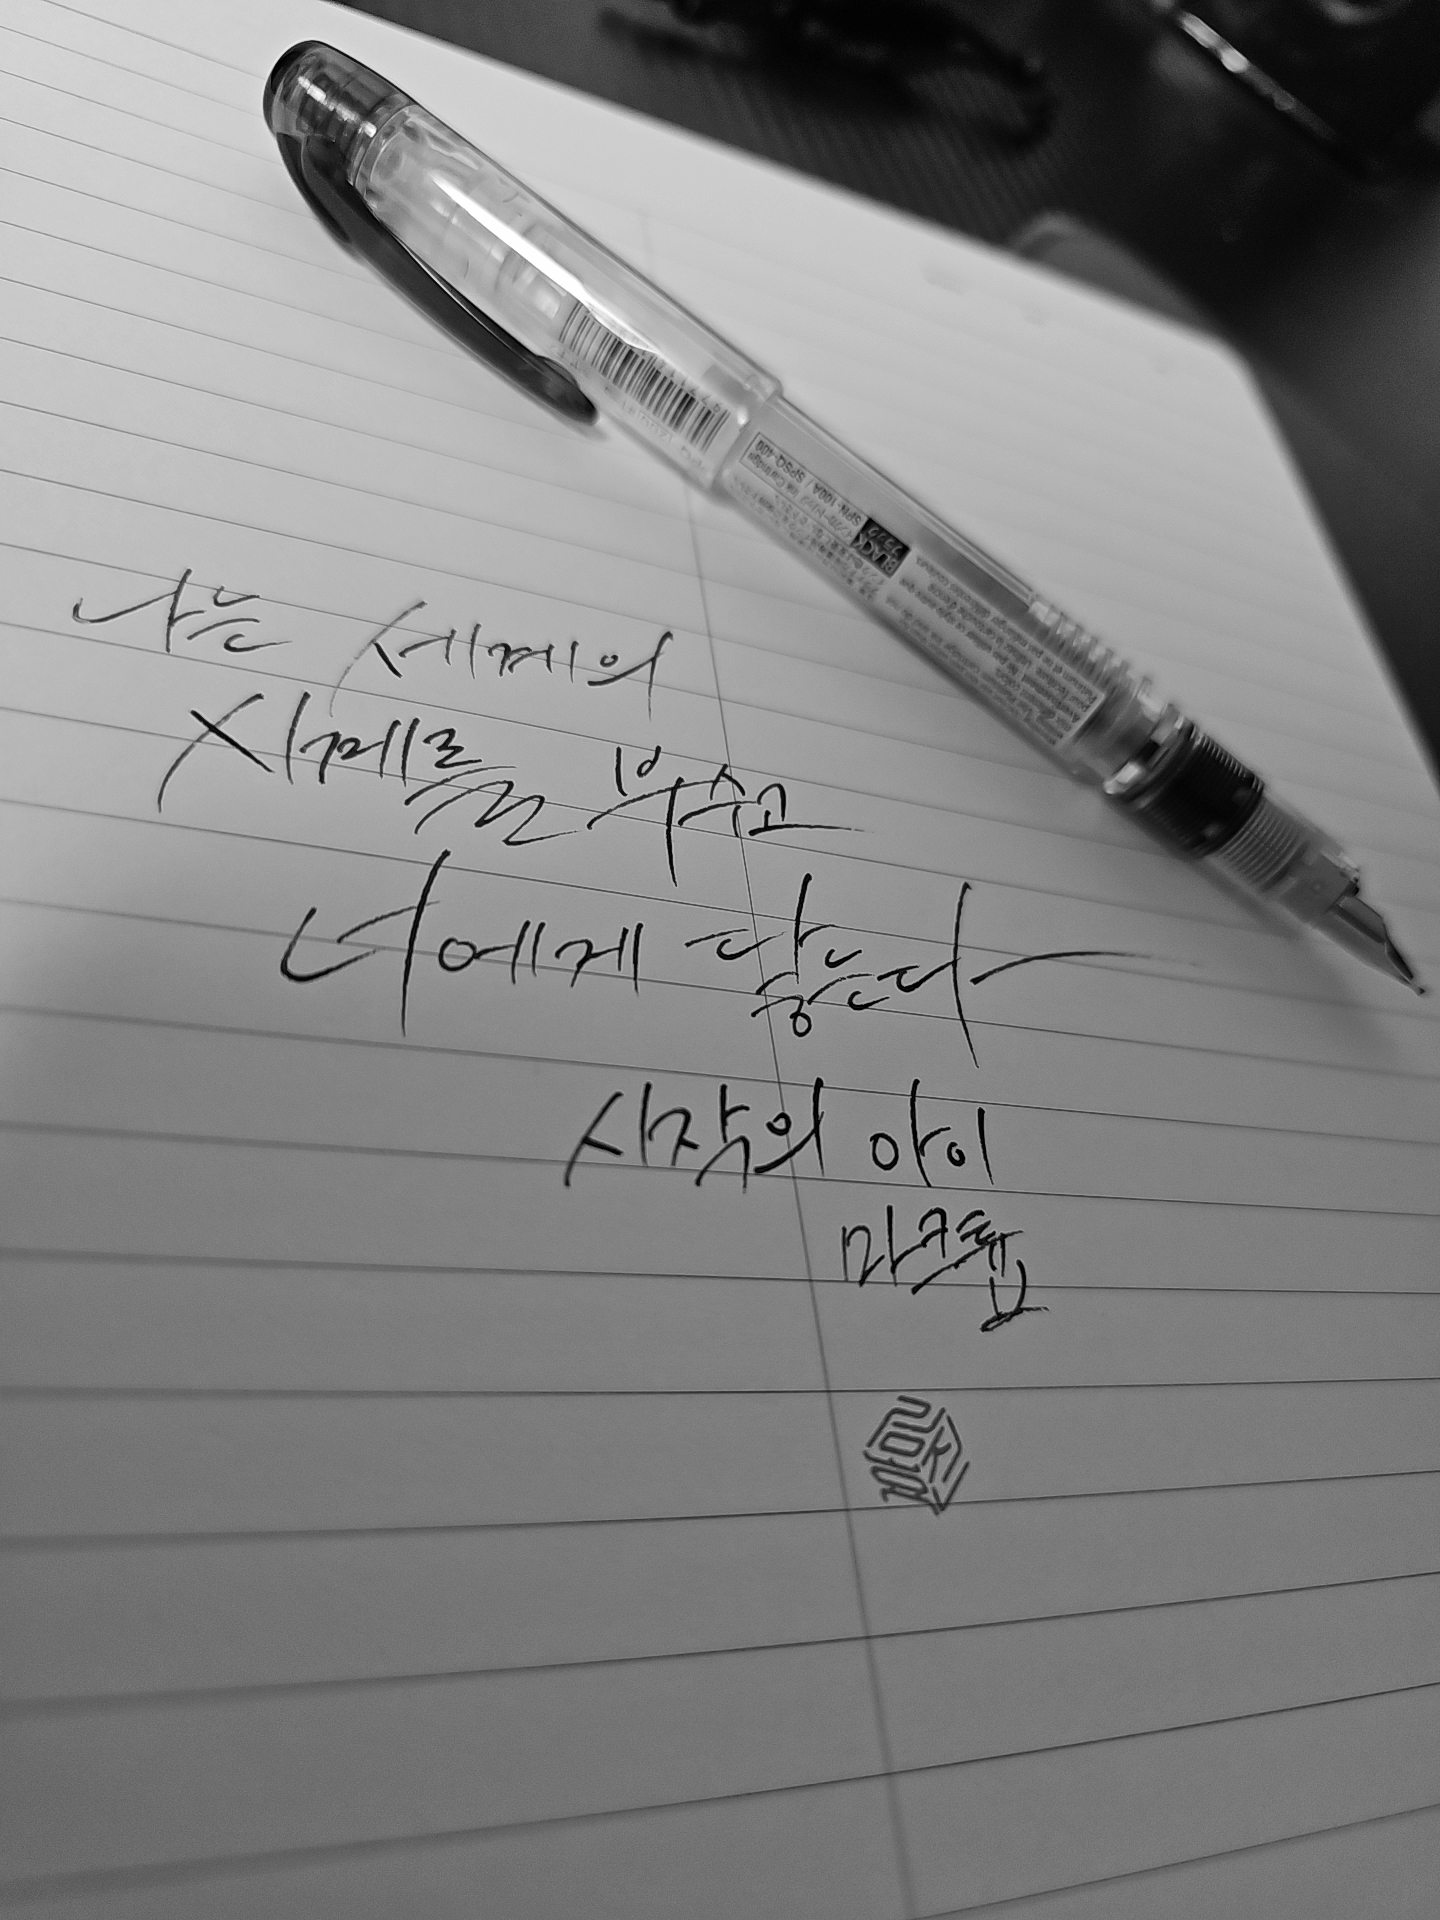 나는 세계의
시계를 부수고
너에게 닿는다
시작의 아이
마크툽
BLACK
SPN-100A / SPSQ-400
Ink Cartridge